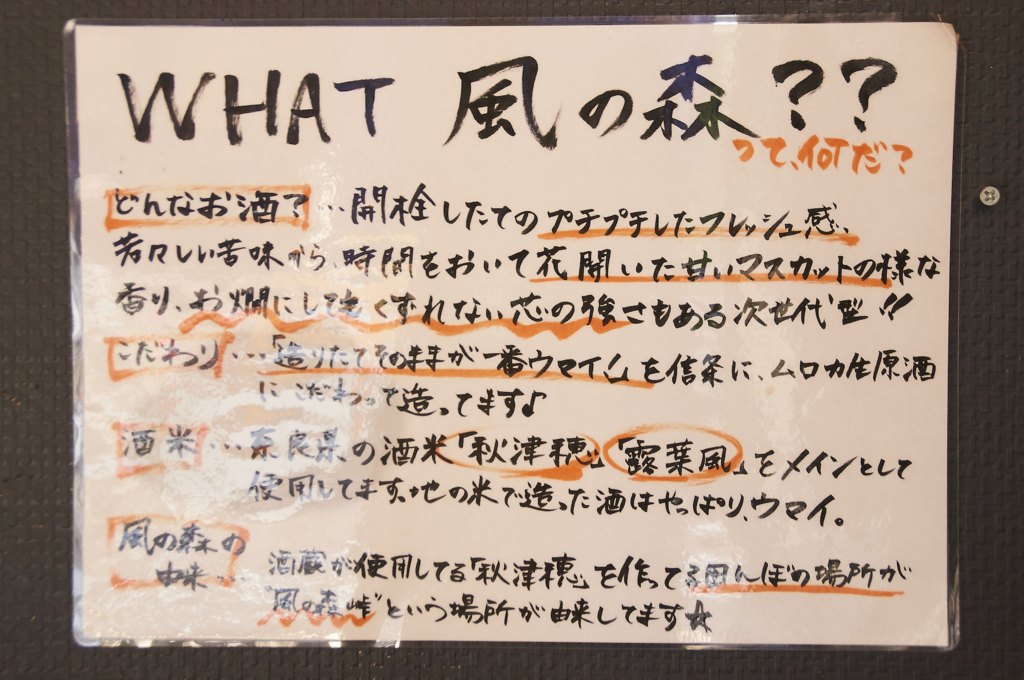 WHAT 風の森??
って、何だ?
どんなお酒?…開栓したてのプチプチしたフレッシュ感、
若々しい苦味から、時間をおいて花開いた甘いマスカットの様な
香り、お燗にしてもくずれない芯の強さもある次世代型!!
こだわり…「造りたてそのままが一番ウマイ!」を信条に、ムロカ生原酒
にこだわって造ってます♪
酒米…奈良県の酒米「秋津穂」「露葉風」をメインとして
使用してます。地の米で造った酒はやっぱり、ウマイ。
風の森の
由来…酒蔵が使用してる「秋津穂」を作ってる田んぼの場所が
"風の森峠"という場所が由来してます☆